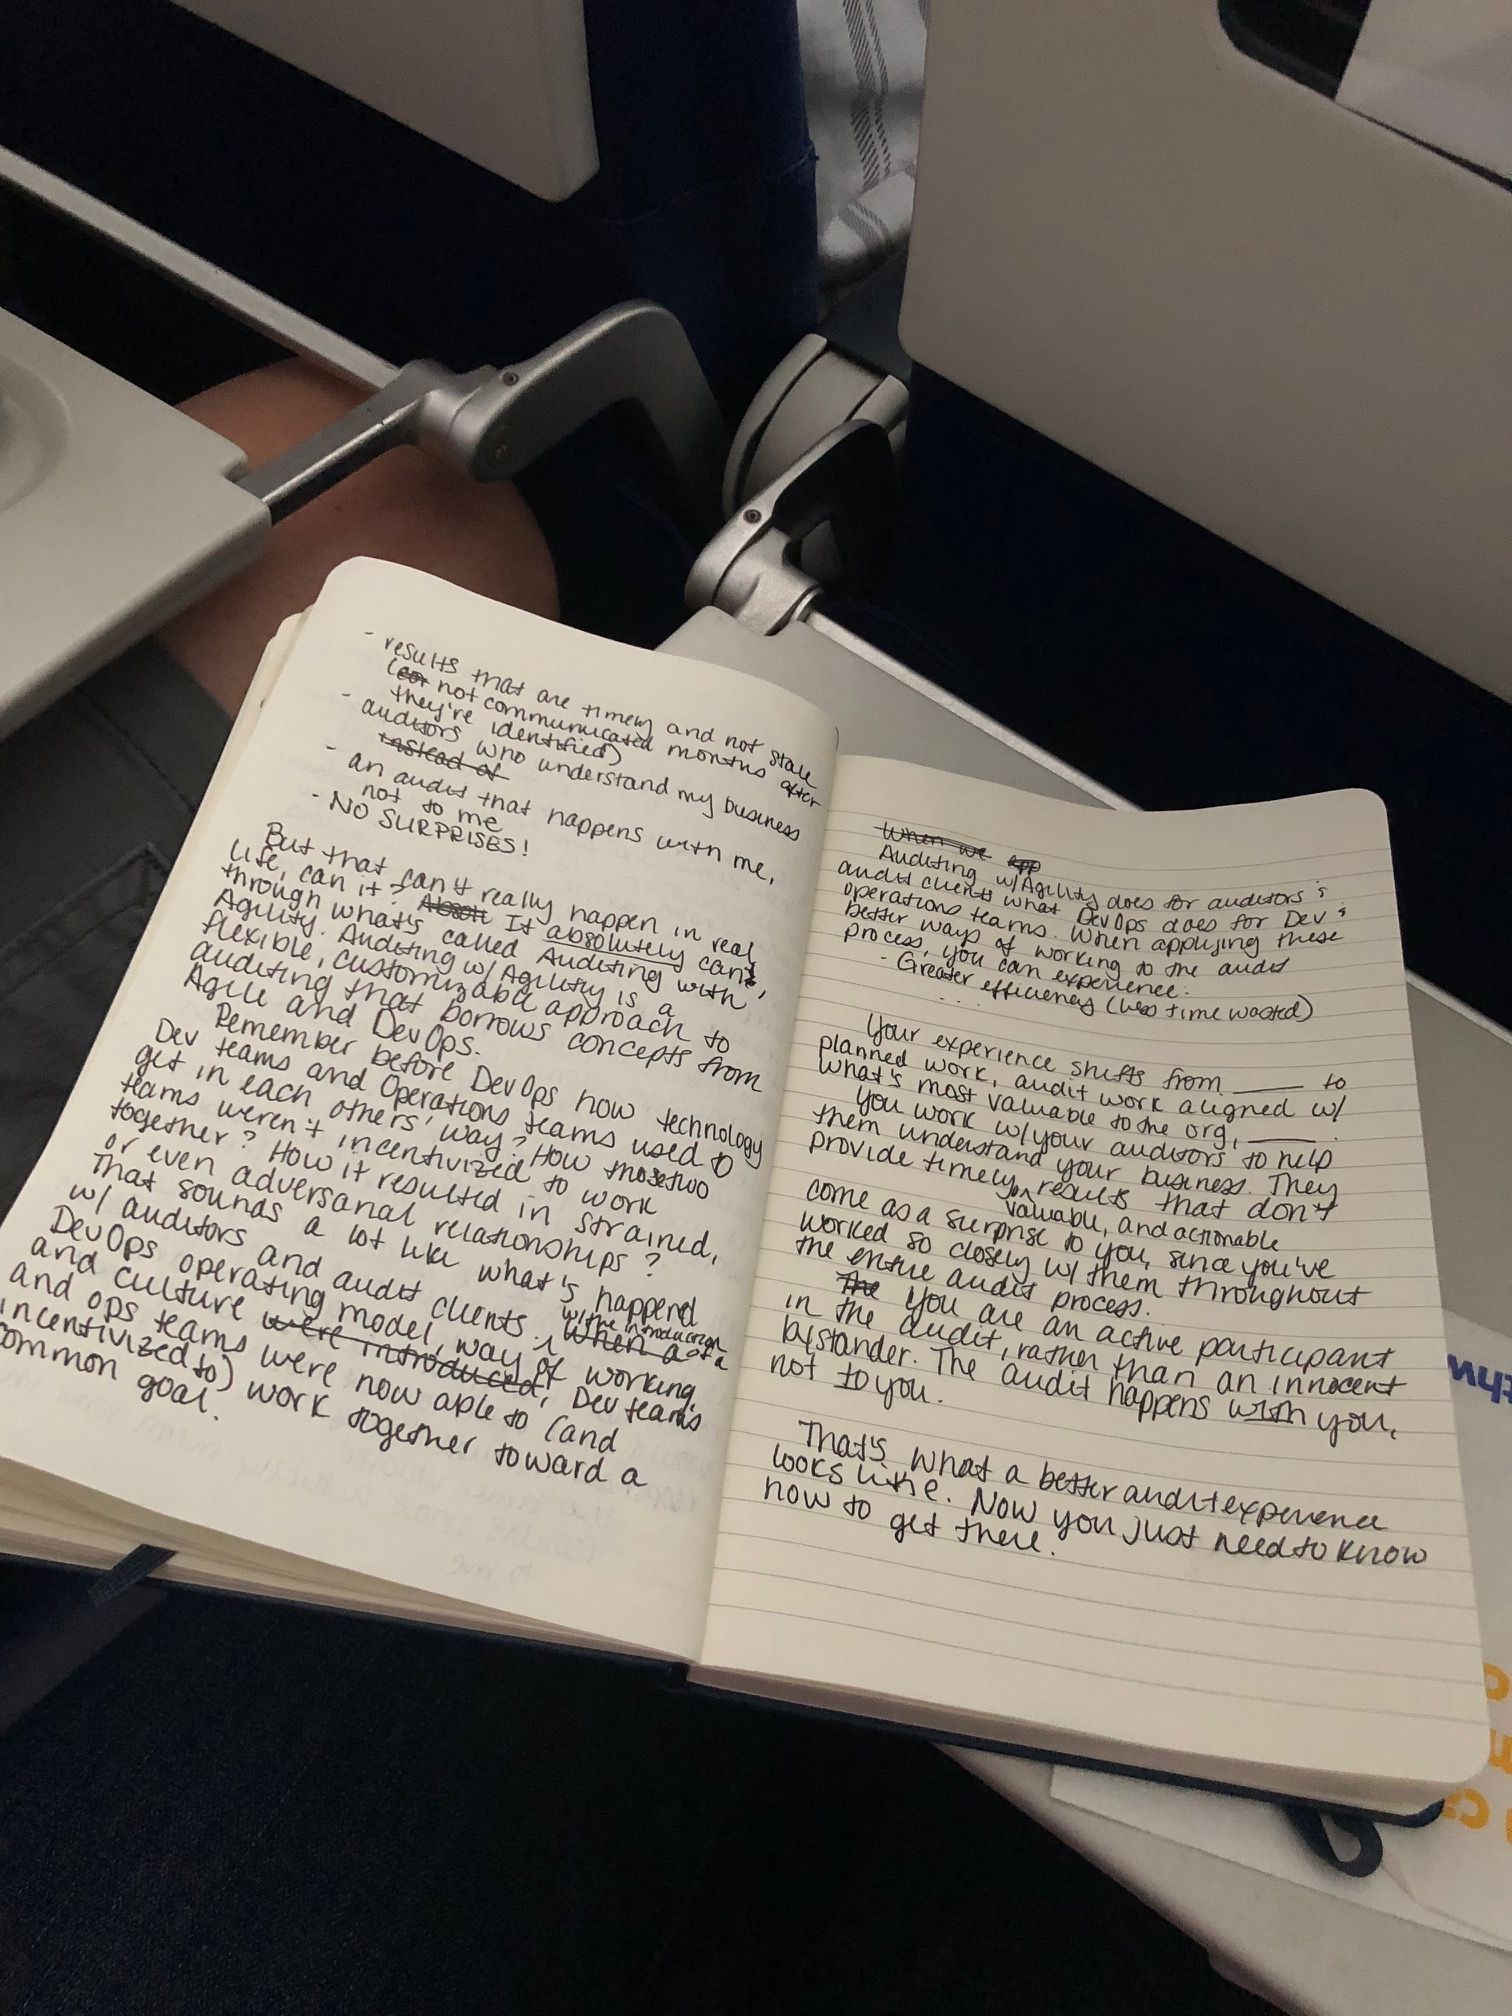 - results that are timely and not stale
(not communicated months after
they're identified)
- auditors who understand my business
instead of
- an audit that happens with me,
not to me
- NO SURPRISES!
But that can't really happen in real
life, can it? Absolt It absolutely can,
through what's called Auditing with
Agility. Auditing w/ Agility is a
flexible, customizable approach to
auditing that borrows concepts from
Agile and DevOps.
Remember before DevOps how technology
Dev teams and Operations teams used to
get in each others' way? How those two
teams weren't incentivized to work
together? How it resulted in strained,
or even adversarial relationships?
That sounds a lot like what's happend
w/ auditors and audit clients. When a w/ the introduction of a
DevOps operating model, way of working,
and culture were introduced, Dev teams
and ops teams were now able to (and
incentivized to) work together toward a
common goal.
When we app
Auditing w/ Agility does for auditors &
audit clients what DevOps does for Dev &
operations teams. When applying these
better ways of working to the audit
process, you can experience:
- Greater efficiency (less time wasted)
....
Your experience shifts from ____ to
planned work, audit work aligned w/
what's most valuable to the org, ____.
You work w/ your auditors to help
them understand your business. They
provide timely, results that don't
valuable, and actionable
come as a surprise to you, since you've
worked so closely w/ them throughout
the entire audit process.
The You are an active participant
in the audit, rather than an innocent
bystander. The audit happens with you,
not to you.
That's what a better audit experience
looks like. Now you just need to know
how to get there.